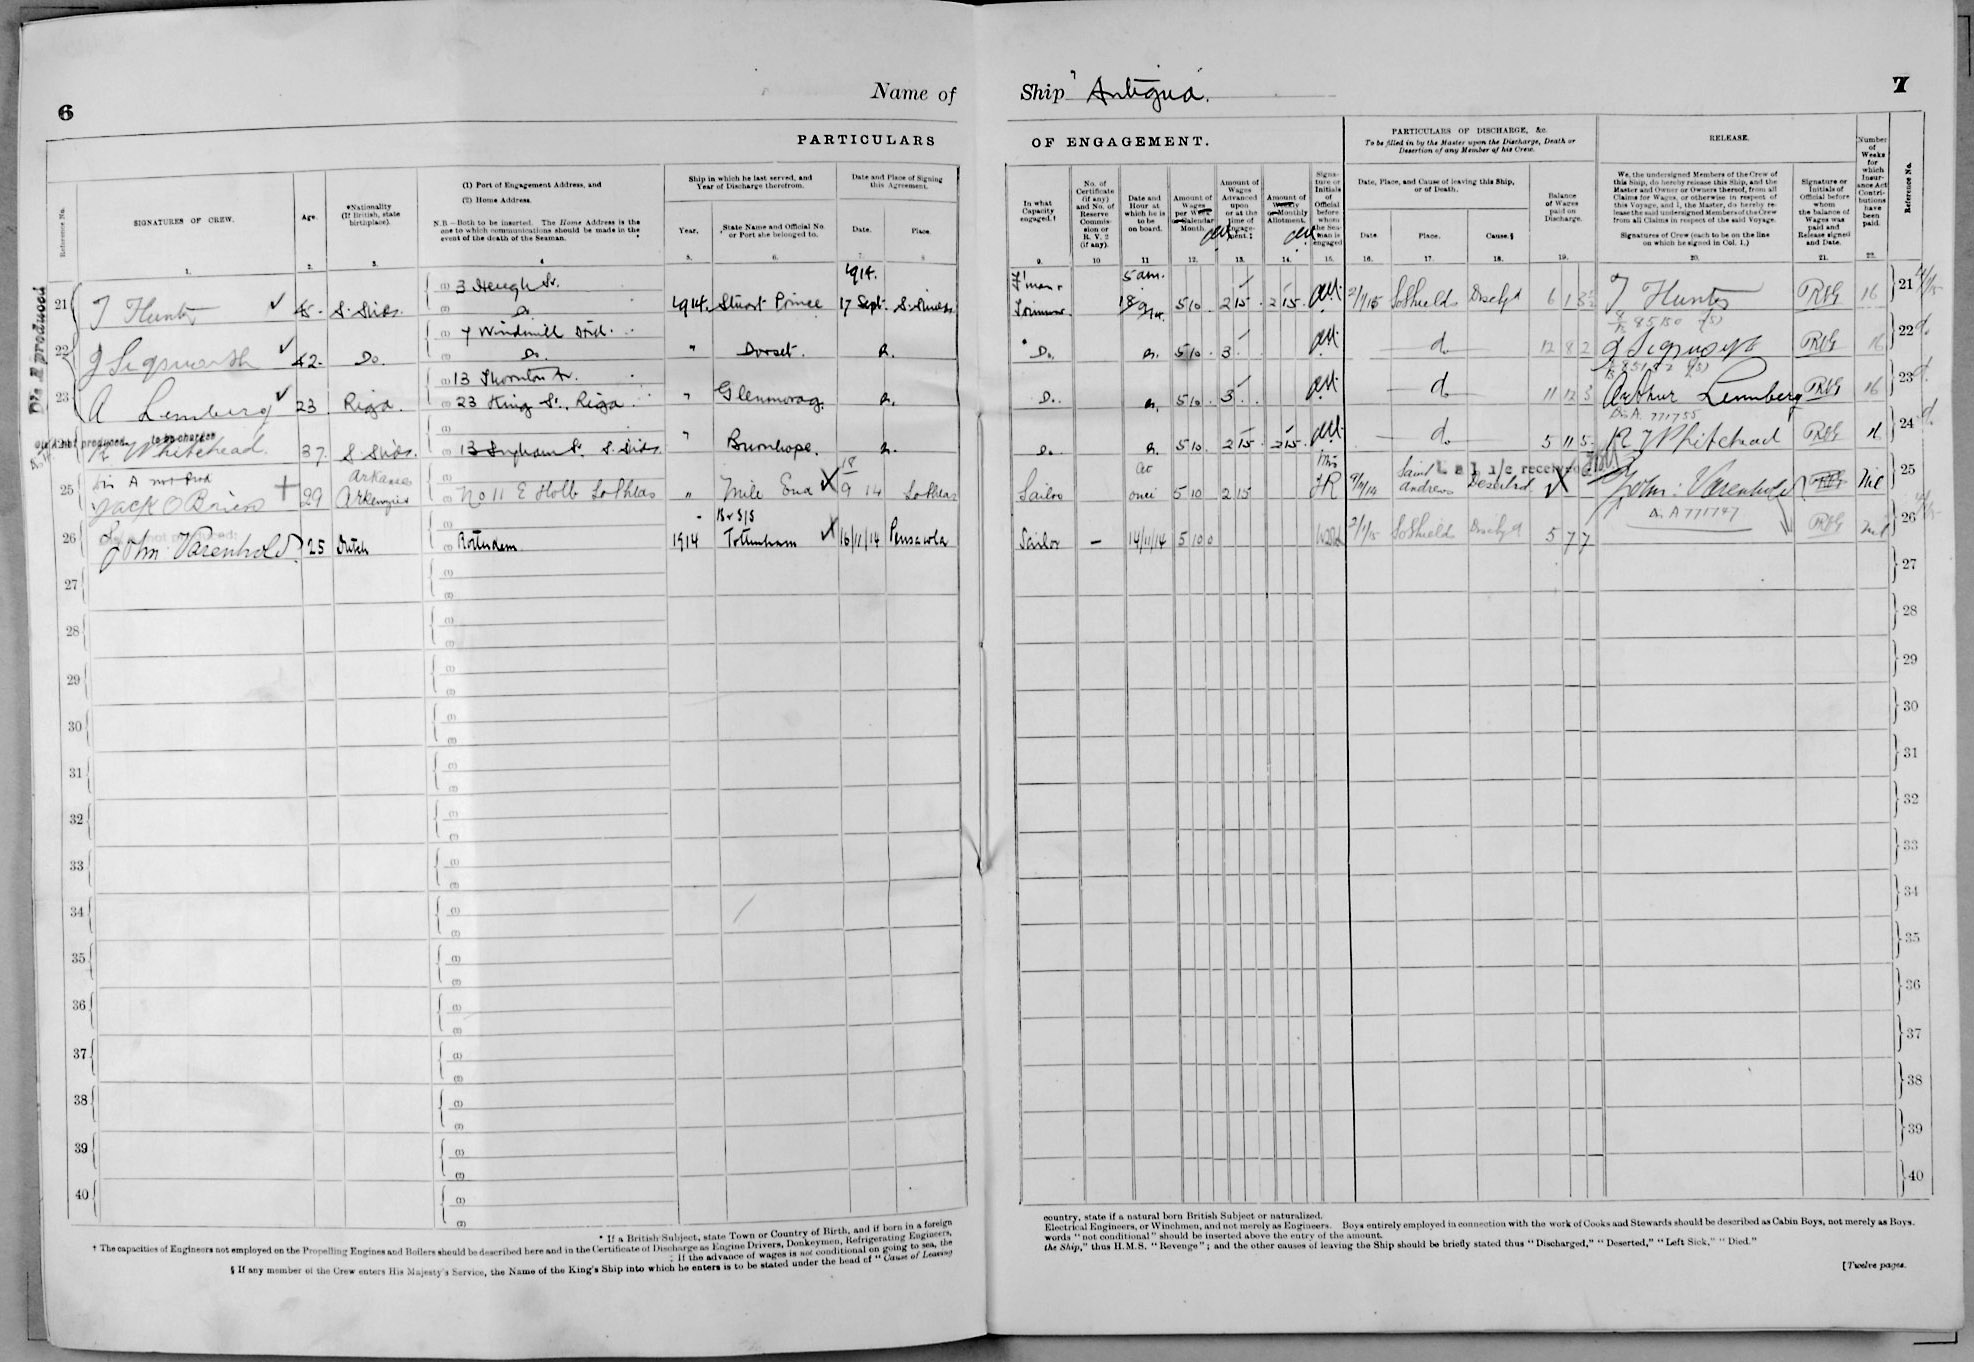 6
Name of
PARTICULARS
Reference No.
SIGNATURES OF CREW.
Age.
*Nationality
(If British, state
birthplace).
(1) Port of Engagement Address, and
(2) Home Address.
N.B.—Both to be inserted. The Home Address is the
one to which communications should be made in the
event of the death of the Seaman.
Ship in which he last served, and
Year of Discharge therefrom.
Year.
State Name and Official No.
or Port she belonged to.
Date and Place of Signing
this Agreement.
Date.
Place.
1. 2. 3. 4 5. 6. 7. 8
Dis A produced
1914.
21 T Hunter 45. S. Shids. (1) 3 Heugh St. (2) Do. 1914. Stuart Prince 17 Sept. S. Shields
22 J Sigsworth 42. Do. (1) 7 Windmill (2) Do. " Dorset.
23 A Lemberg 23 Riga. (1) 13 Thornton Av. (2) 23 King St., Riga " Glenmorag.
Dis A not produced to be charged
R Whitehead. 37. S. Shids. (1) (2) 13 Ingham St. S. Shids. " Burnhope.
Dis A not prod
Arkansas
25 Jack O Brien 29 No 11 E Holb So Shlds " Mile End 18/9 14 So Shlds
Br S/S
26 John Varenhold. 25 Dutch (1) (2) Rotterdam 1914 Tottenham 16/11/14 Pensacola
27 (1) (2)
28 (1) (2)
29 (1) (2)
30 (1) (2)
31 (1) (2)
32 (1) (2)
33 (1) (2)
34 (1) (2)
35 (1) (2)
36 (1) (2)
37 (1) (2)
38 (1) (2)
39 (1) (2)
40 (1) (2)
* If a British Subject, state Town or Country of Birth, and if born in a foreign
† The capacities of Engineers not employed on the Propelling Engines and Boilers should be described here and in the Certificate of Discharge as Engine Drivers, Donkeymen, Refrigerating Engineers,
‡ If the advance of wages is not conditional on going to sea, the
§ If any member of the Crew enters His Majesty's Service, the Name of the King's Ship into which he enters is to be stated under the head of "Cause of Leaving
Ship "Antigua.
7
OF ENGAGEMENT.
PARTICULARS OF DISCHARGE, &c.
To be filled in by the Master upon the Discharge, Death or
Desertion of any Member of his Crew.
RELEASE.
In what
Capacity
engaged.†
No. of
Certificate
(if any)
and No. of
Reserve
Commis-
sion or
R. V. 2
(if any).
Date and
Hour at
which he is
to be
on board.
Amount of
Wages
per Week
or Calendar
Month.
Amount of
Wages
Advanced
upon
or at the
time of
Engage-
ment.‡
Amount of
Weekly
or Monthly
Allotment.
Signa-
ture or
Initials
of
Official
before
whom
the Sea-
man is
engaged
Date, Place, and Cause of leaving this Ship,
or of Death.
Date.
Place.
Cause.§
Balance
of Wages
paid on
Discharge.
We, the undersigned Members of the Crew of
this Ship, do hereby release this Ship, and the
Master and Owner or Owners thereof, from all
Claims for Wages, or otherwise in respect of
this Voyage, and I, the Master, do hereby re-
lease the said undersigned Members of the Crew
from all Claims in respect of the said Voyage.
Signatures of Crew (each to be on the line
on which he signed in Col. 1.)
Signature or
Initials of
Official before
whom
the balance of
Wages was
paid and
Release signed
and Date.
Number
of
Weeks
for
which
Insur-
ance Act
Contri-
butions
have
been
paid.
Reference No.
9. 10 11 12. 13. 14. 15. 16. 17. 18. 19. 20. 21. 22.
F'man & 5 am.
Trimmer. 18/9/14. 5 10 2 15 2 15. So Shields Dischgd 6 1 T Hunter 16 21
Do. 5 10. 3 do 12 8 2 J Sigsworth 16 22
Do. 5 10. 3 do 11 12 3 Arthur Lemberg 16 23
Dis A. 771755
Do. 5 10. 2 15. 2 15. do 5 11 5 R Whitehead 24
Saint L & 1 1/c received
Sailor at once 5 10 2 15 JR Andrews Deserted John: Varenhold Nil 25
Dis A 771747
Sailor — 14/11/14 5 10 0 So Shields Dischgd 5 7 7 Nil 26
27
28
29
30
31
32
33
34
35
36
37
38
39
40
country, state if a natural born British Subject or naturalized.
Electrical Engineers, or Winchmen, and not merely as Engineers. Boys entirely employed in connection with the work of Cooks and Stewards should be described as Cabin Boys, not merely as Boys.
words "not conditional" should be inserted above the entry of the amount.
the Ship," thus H.M.S. "Revenge"; and the other causes of leaving the Ship should be briefly stated thus "Discharged," "Deserted," "Left Sick," "Died."
[Twelve pages.